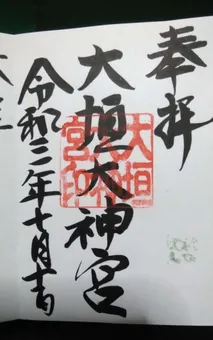 奉拝
大垣大神宮
大垣大神宮印
令和三年七月吉日